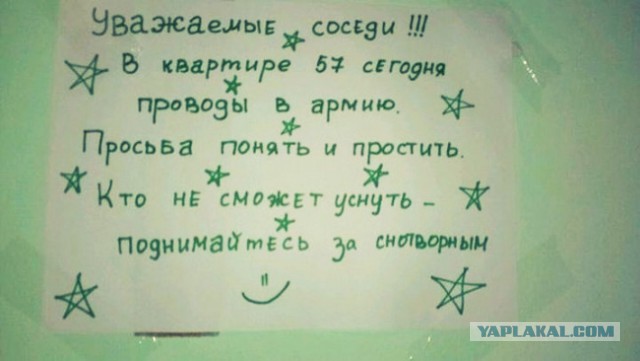 Уважаемые соседи !!!
В квартире 57 сегодня
проводы в армию.
Просьба понять и простить.
Кто не сможет уснуть –
поднимайтесь за снотворным
YAPLAKAL.COM